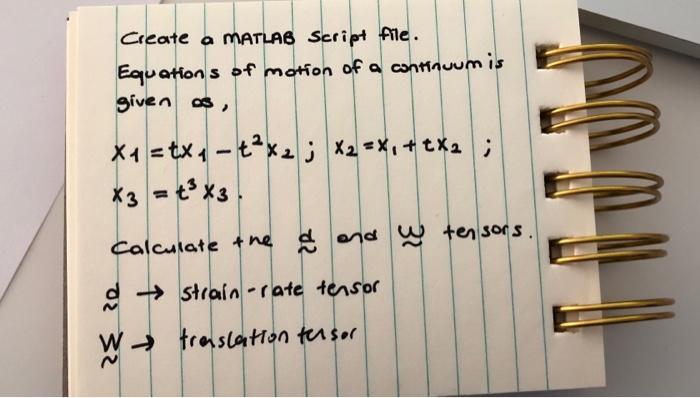 Create a MATLAB Script file.
Equations of motion of a continuum is
given as,
x1 = tx1 - t²x2 ; x2 = x1 + tx2 ;
x3 = t³x3.
Calculate the d̰ and w̰ tensors.
d̰ → strain-rate tensor
W̰ → translation tensor